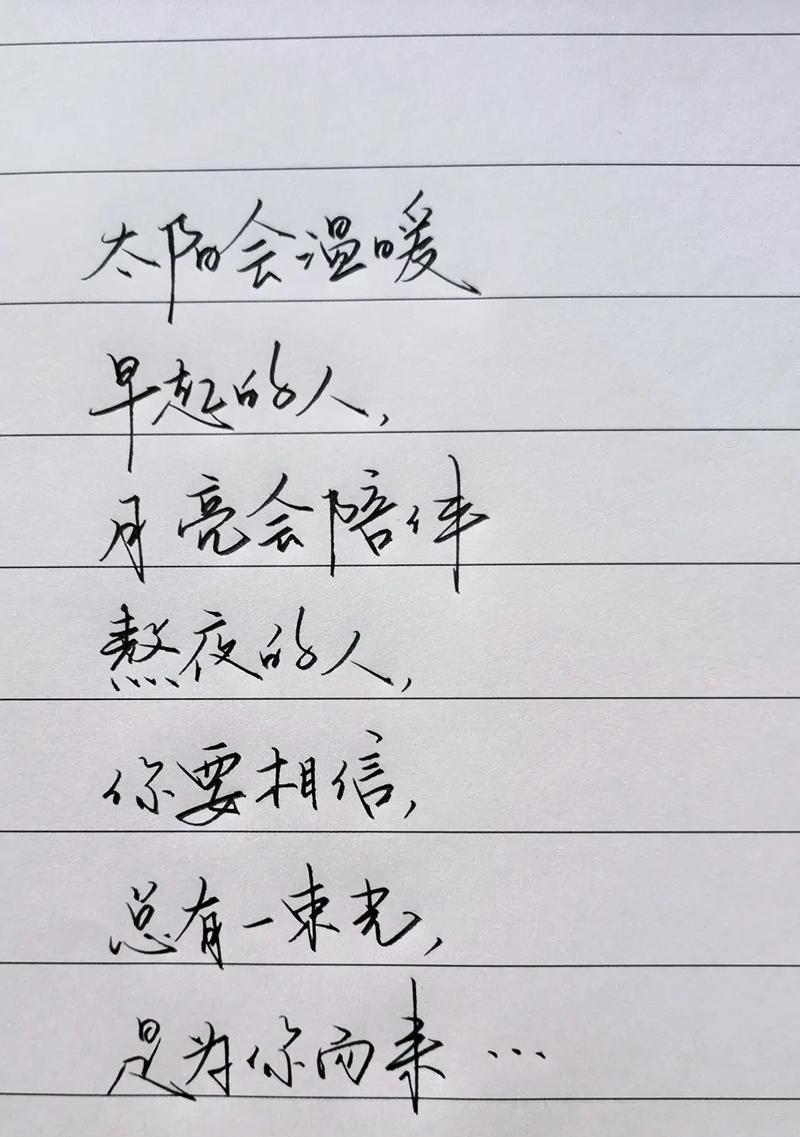 太阳会温暖
早起的人,
月亮会陪伴
熬夜的人,
你要相信,
总有一束光,
是为你而来…